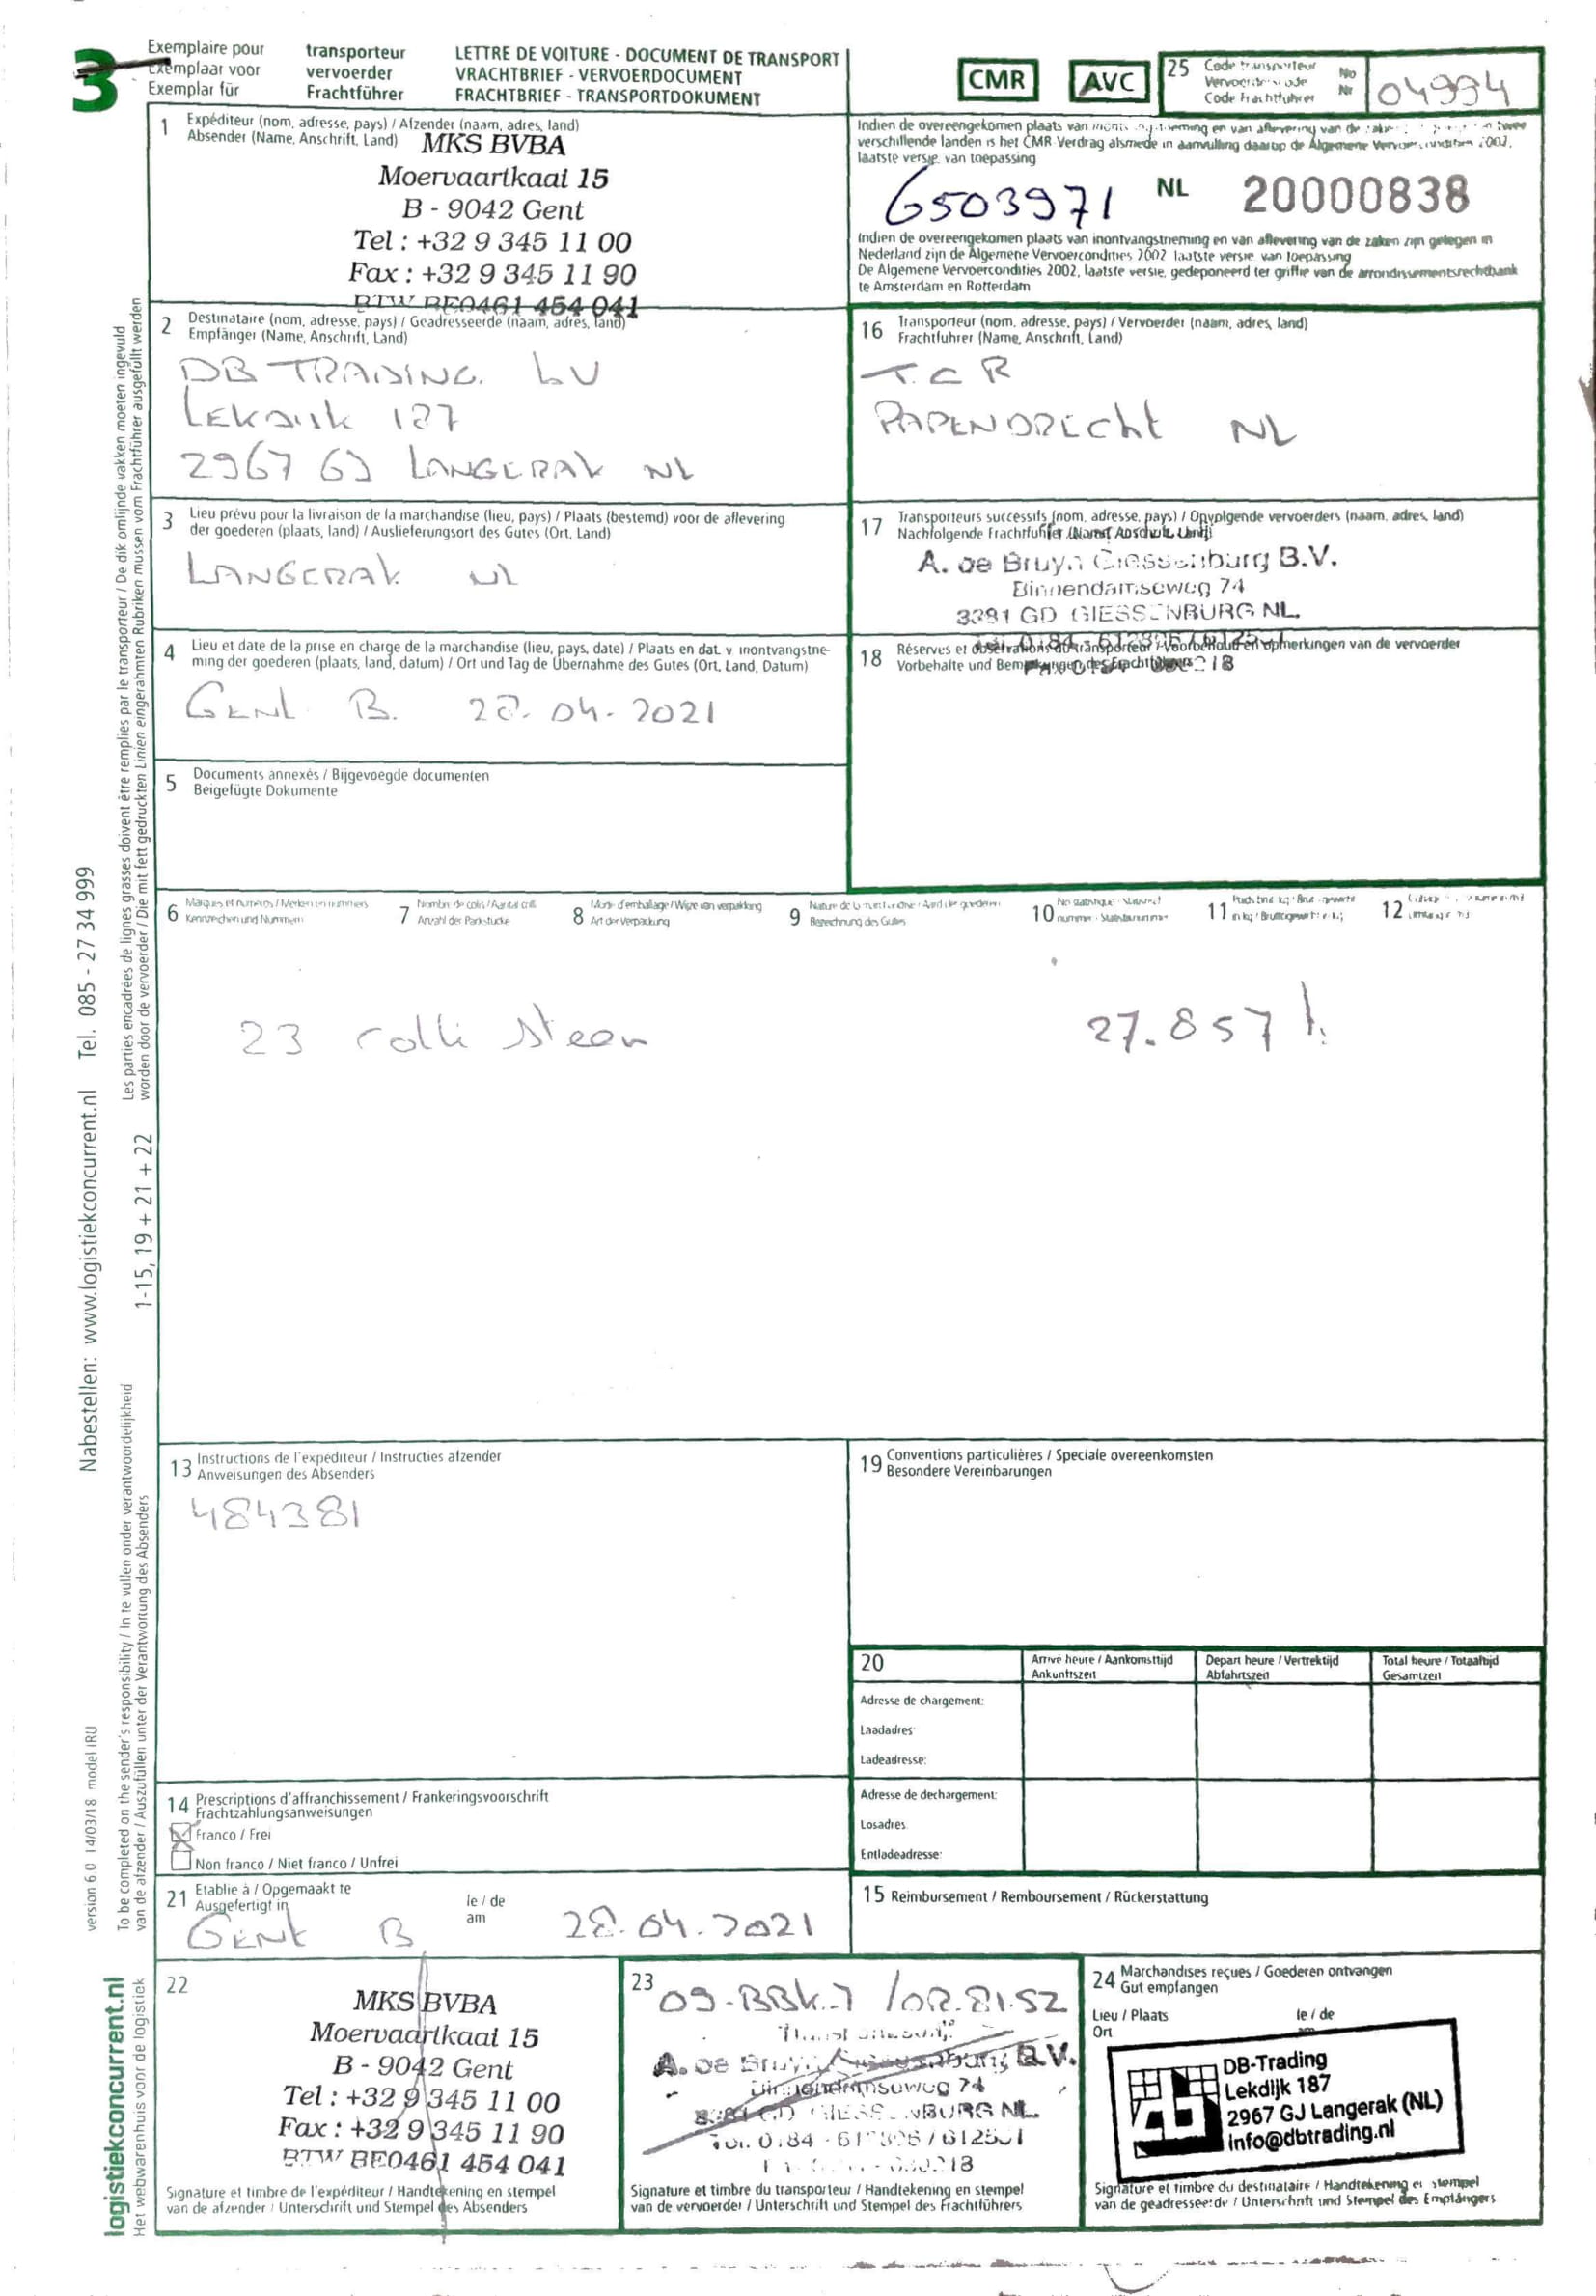 3
Exemplaire pour
Exemplaar voor
Exemplar für
transporteur
vervoerder
Frachtführer
LETTRE DE VOITURE - DOCUMENT DE TRANSPORT
VRACHTBRIEF - VERVOERDOCUMENT
FRACHTBRIEF - TRANSPORTDOKUMENT
CMR
AVC
25 Code transporteur
Vervoerderscode
Code Frachtführer
No
Nr
04994
1 Expéditeur (nom, adresse, pays) / Afzender (naam, adres, land)
Absender (Name, Anschrift, Land)
MKS BVBA
Moervaartkaai 15
B - 9042 Gent
Tel : +32 9 345 11 00
Fax : +32 9 345 11 90
BTW BE0461 454 041
verschillende landen is het CMR Verdrag alsmede in aanvulling daarop de Algemene Vervoercondities 2002,
laatste versie, van toepassing
6503971
NL 20000838
Indien de overeengekomen plaats van inontvangstneming en van aflevering van de zaken zijn gelegen in
Nederland zijn de Algemene Vervoercondities 2002 laatste versie van toepassing
De Algemene Vervoercondities 2002, laatste versie, gedeponeerd ter griffie van de arrondissementsrechtbank
te Amsterdam en Rotterdam
2 Destinataire (nom, adresse, pays) / Geadresseerde (naam, adres, land)
Empfänger (Name, Anschrift, Land)
DB TRADING bv
Lekdijk 187
2967 GJ LANGERAK NL
16 Transporteur (nom, adresse, pays) / Vervoerder (naam, adres, land)
Frachtführer (Name, Anschrift, Land)
T.C.R
PAPENDRECHT NL
3 Lieu prévu pour la livraison de la marchandise (lieu, pays) / Plaats (bestemd) voor de aflevering
der goederen (plaats, land) / Auslieferungsort des Gutes (Ort, Land)
LANGERAK NL
17 Transporteurs successifs (nom, adresse, pays) / Opvolgende vervoerders (naam, adres, land)
Nachfolgende Frachtführer (Name, Anschrift, Land)
A. de Bruyn Giessenburg B.V.
Binnendamseweg 74
3381 GD GIESSENBURG NL.
4 Lieu et date de la prise en charge de la marchandise (lieu, pays, date) / Plaats en dat. v. inontvangstne-
ming der goederen (plaats, land, datum) / Ort und Tag de Übernahme des Gutes (Ort, Land, Datum)
GENT B. 28.04.2021
18 Réserves et observations du transporteur / Voorbehoud en opmerkingen van de vervoerder
Vorbehalte und Bemerkungen des Frachtführers
5 Documents annexés / Bijgevoegde documenten
Beigefügte Dokumente
6 Marques et numéros / Merken en nummers
Kennzeichen und Nummern
7 Nombre de colis / Aantal colli
Anzahl der Packstücke
8 Mode d'emballage / Wijze van verpakking
Art der Verpackung
9 Nature de la marchandise / Aard der goederen
Bezeichnung des Gutes
10
11
12
23 colli steen
27.857
13 Instructions de l'expéditeur / Instructies afzender
Anweisungen des Absenders
484381
19 Conventions particulières / Speciale overeenkomsten
Besondere Vereinbarungen
20
Arrivé heure / Aankomsttijd
Ankunftszeit
Depart heure / Vertrektijd
Abfahrtszeit
Total heure / Totaaltijd
Gesamtzeit
Adresse de chargement:
Laadadres:
Ladeadresse:
Adresse de dechargement:
Losadres
Entladeadresse:
14 Prescriptions d'affranchissement / Frankeringsvoorschrift
Frachtzahlungsanweisungen
Franco / Frei
Non franco / Niet franco / Unfrei
21 Etablie à / Opgemaakt te
Ausgefertigt in
le / de
am
GENT B 28.04.2021
15 Reimbursement / Remboursement / Rückerstattung
22
MKS BVBA
Moervaartkaai 15
B - 9042 Gent
Tel : +32 9 345 11 00
Fax : +32 9 345 11 90
BTW BE0461 454 041
Signature et timbre de l'expéditeur / Handtekening en stempel
van de afzender / Unterschrift und Stempel des Absenders
23
09-BBK-7 /
A. de Bruyn Giessenburg B.V.
Binnendamseweg 74
3381 GD GIESSENBURG NL.
Signature et timbre du transporteur / Handtekening en stempel
van de vervoerder / Unterschrift und Stempel des Frachtführers
24 Marchandises reçues / Goederen ontvangen
Gut empfangen
Lieu / Plaats
Ort
le / de
DB-Trading
Lekdijk 187
2967 GJ Langerak (NL)
info@dbtrading.nl
Signature et timbre du destinataire / Handtekening en stempel
van de geadresseerde / Unterschrift und Stempel des Empfängers
Les parties encadrées de lignes grasses doivent être remplies par le transporteur / De dik omlijnde vakken moeten ingevuld
worden door de vervoerder / Die mit fett gedruckten Linien eingerahmten Rubriken mussen vom Frachtführer ausgefüllt werden
Nabestellen: www.logistiekconcurrent.nl Tel. 085 - 27 34 999
1-15, 19 + 21 + 22
To be completed on the sender's responsibility / In te vullen onder verantwoordelijkheid
van de afzender / Auszufüllen unter der Verantwortung des Absenders
version 6.0 14/03/18 model IRU
logistiekconcurrent.nl
Het webwarenhuis voor de logistiek